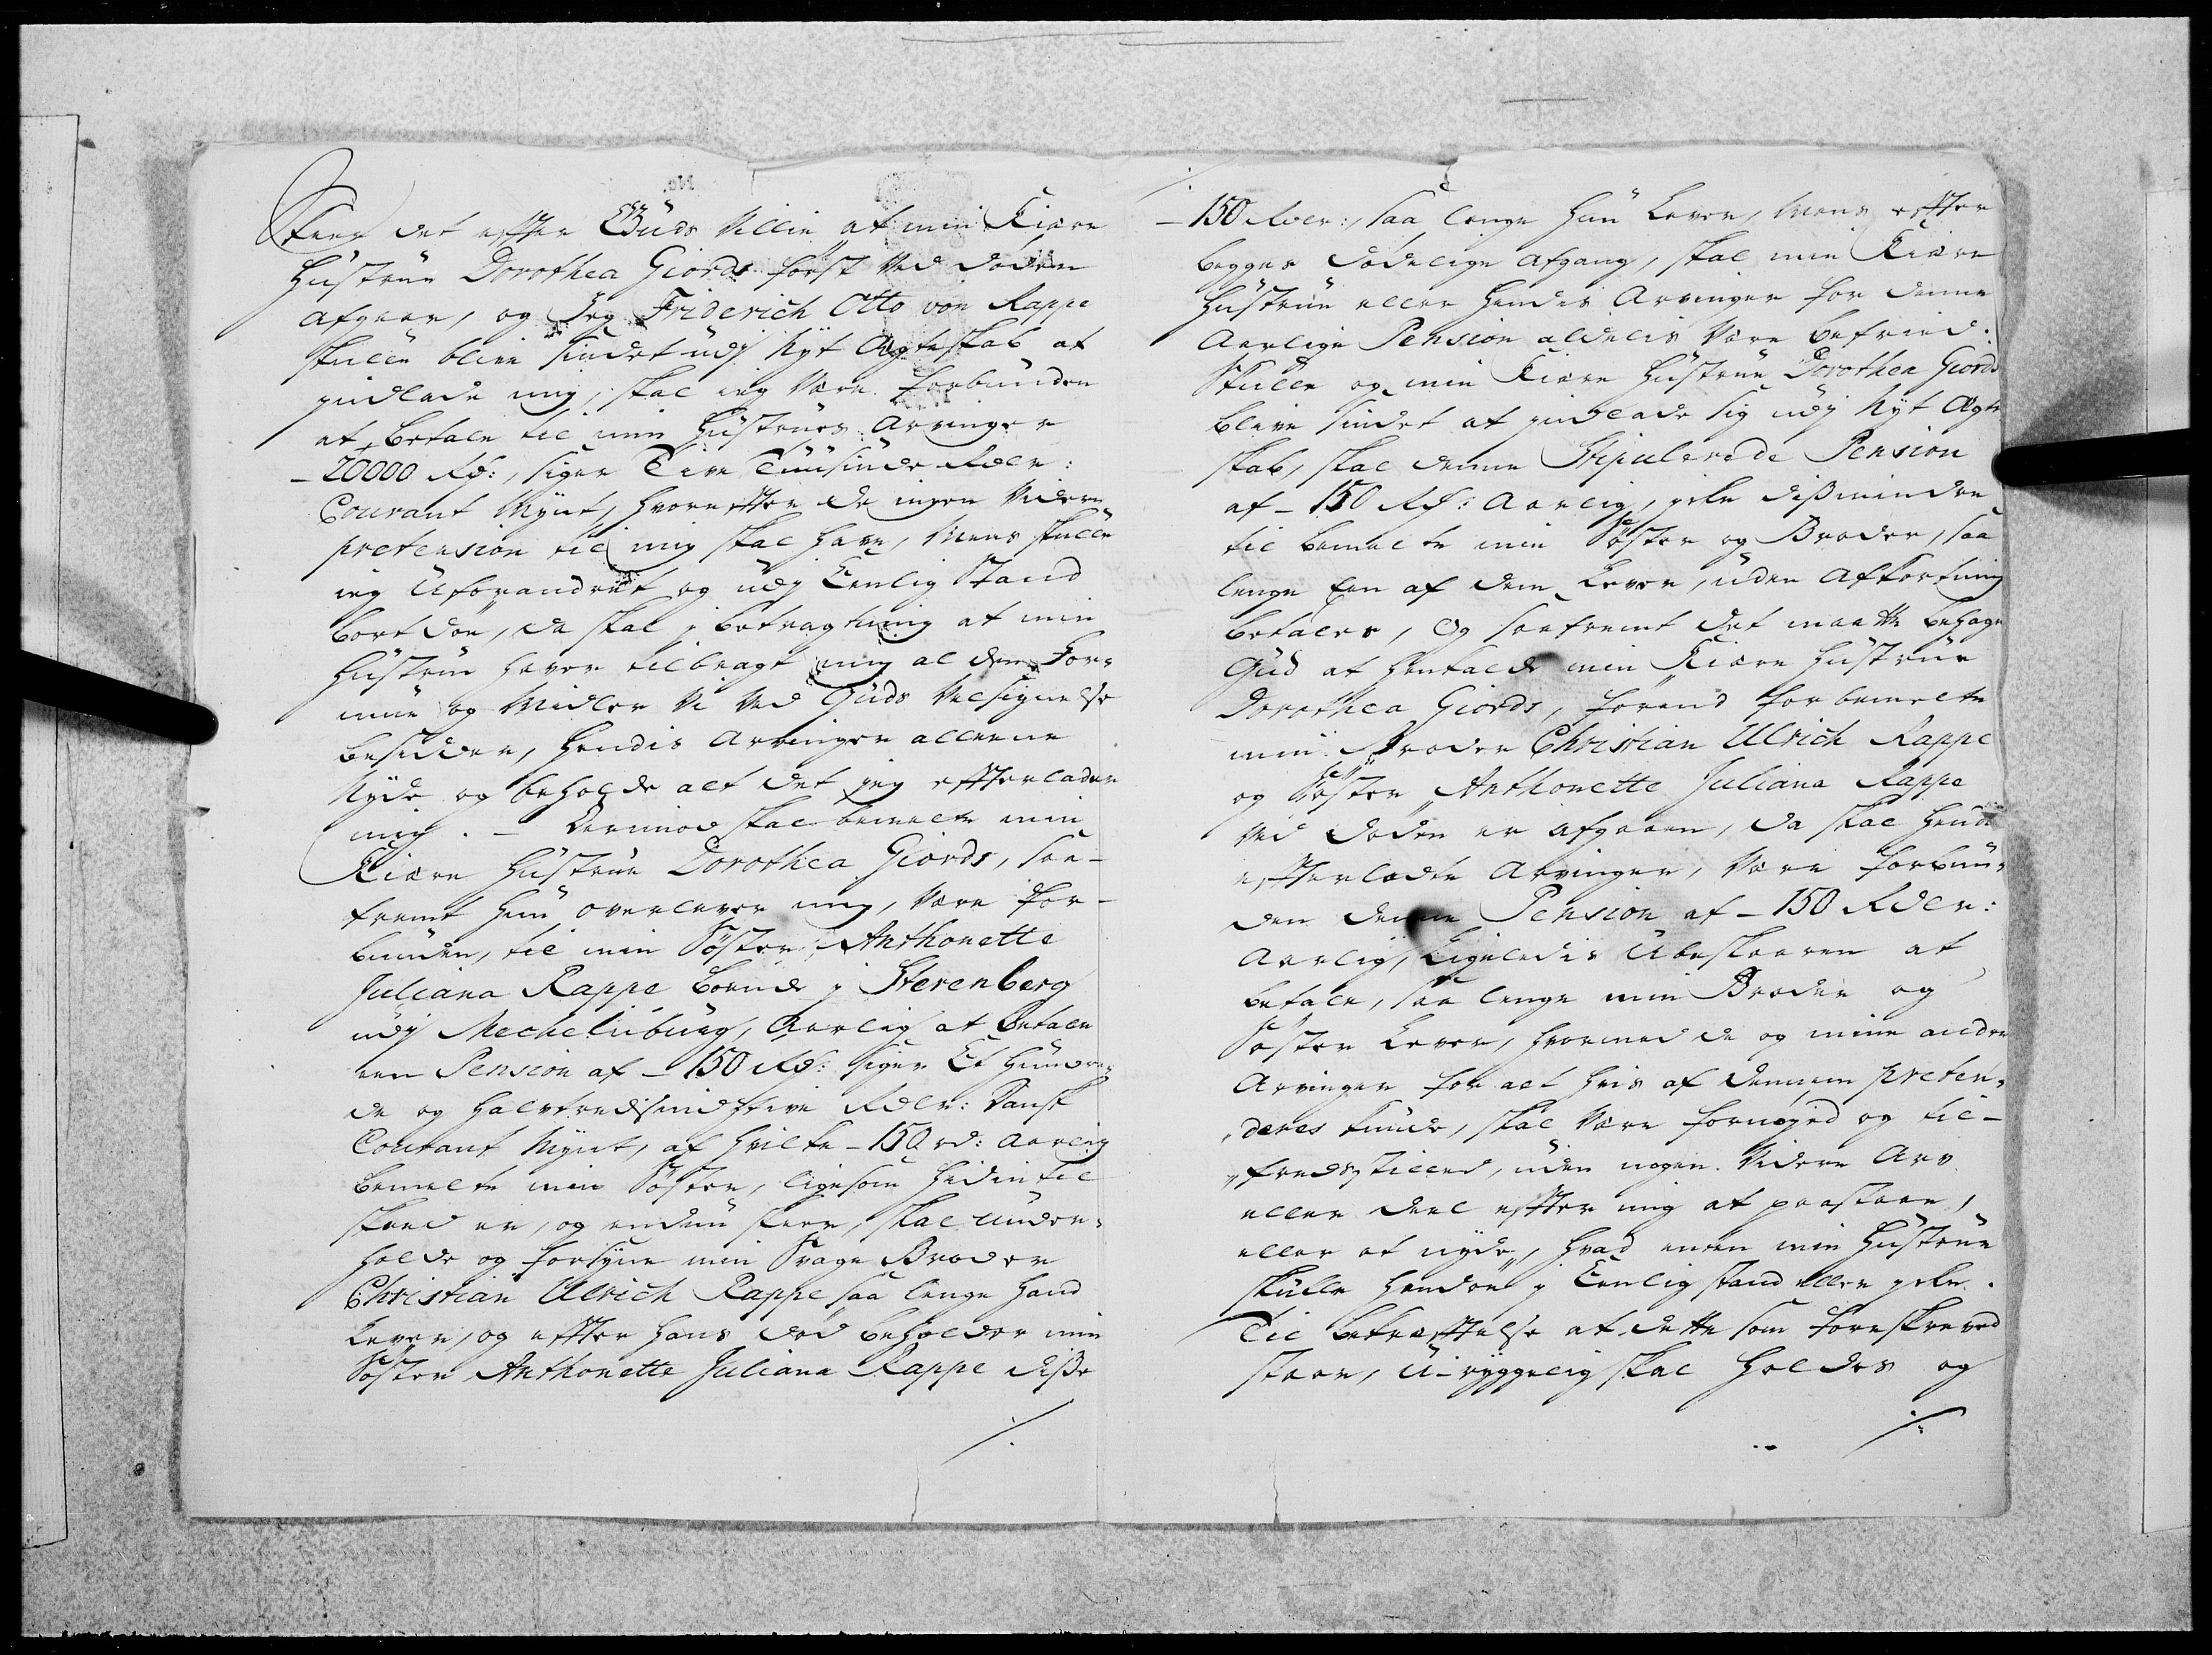 Skeer det efter Guds Villie at min Kiære
Hustrue Dorothea Giords först Ved döden
afgaar, og Jeg Friderich Otto von Rappe
skulle blive sindet udj Nyt Ægteskab at
indlade mig, skal jeg være forbunden
at betale til min Hustrues Arvinger
- 20000 Rd:, siger Tive Tuusinde Rdlr:
Courant Mynt, hvorefter de ingen Videre
pretension til mig skal have, Mens skulle
jeg Uforandret og udj Eenlig Stand
bortdöe, da skal j betragtning at min
Hustrue haver tilbragt mig al den For-
mue og Midler Vi Ved Guds Velsignelse
besidder, Hendis Arvinger alleene
Nyde og beholde alt det jeg effterlader
mig. - Derimod skal bemelte min
Kiære Hustrue Dorothea Giords, saa-
fremt hun overlever mig, være for-
bunden, til min Söster Anthonette
Juliana Rappe boende j Sterenberg
udj Mechelnburg, Aarlig at betale
een Pension af - 150 Rd: siger Et Hundre-
de og halvtredsindstive Rdlr: Dansk
Courant Mynt, af hvilke - 150 rd: aarlig
bemelte min Söster, ligesom hidindtil
skeed er, og endnu skeer, skal under-
holde og forsyne min Svage Broder
Christian Ulrich Rappe saa lenge hand
Lever, og effter hans död beholder min
Söster Anthonette Juliana Rappe disse
./.
- 150 Rdlr:, saa lenge hun Lever, Mens effter
begges dödelige afgang, skal min Kiære
Hustrue eller hendes Arvinger for denne
Aarlige Pension aldelis være befried.
Skulle og min Kiære Hustrue Dorothea Giords
blive sindet at indlade sig udj Nyt Ægte
skab, skal denne Stipulerede Pension
af - 150 Rd: Aarlig, icke dissmindre
til bemelte min Söster og Broder, saa
lenge Een af dem Lever, uden Afkortning
betales, Og saafremt det maatte behage
Gud at henkalde min Kiære Hustrue
Dorothea Giords, forend forbemelte
min Broder Christian Ulrich Rappe
og Söster Anthonette Juliana Rappe
Ved döden er afgaaen, da skal hendis
effterladte Arvinger, være forbun-
den denne Pension af - 150 Rdlr:
Aarlig, Ligeledis Ubeskaaren at
betale, saa lenge min Broder og
Söster Lever, hvormed de og mine andre
Arvinger for alt hvis af dennem preten-
deres kunde, skal være fornøjed og til-
fredsstilled, uden nogen Videre Arv
eller deel effter mig at paastaae,
eller at nyde, hvad enten min Hustrue
skulle hendöe j Eenlig stand eller icke.
Til bekræfftelse at dette som foreskreved
staar, U-ryggelig skal holdes og
./.